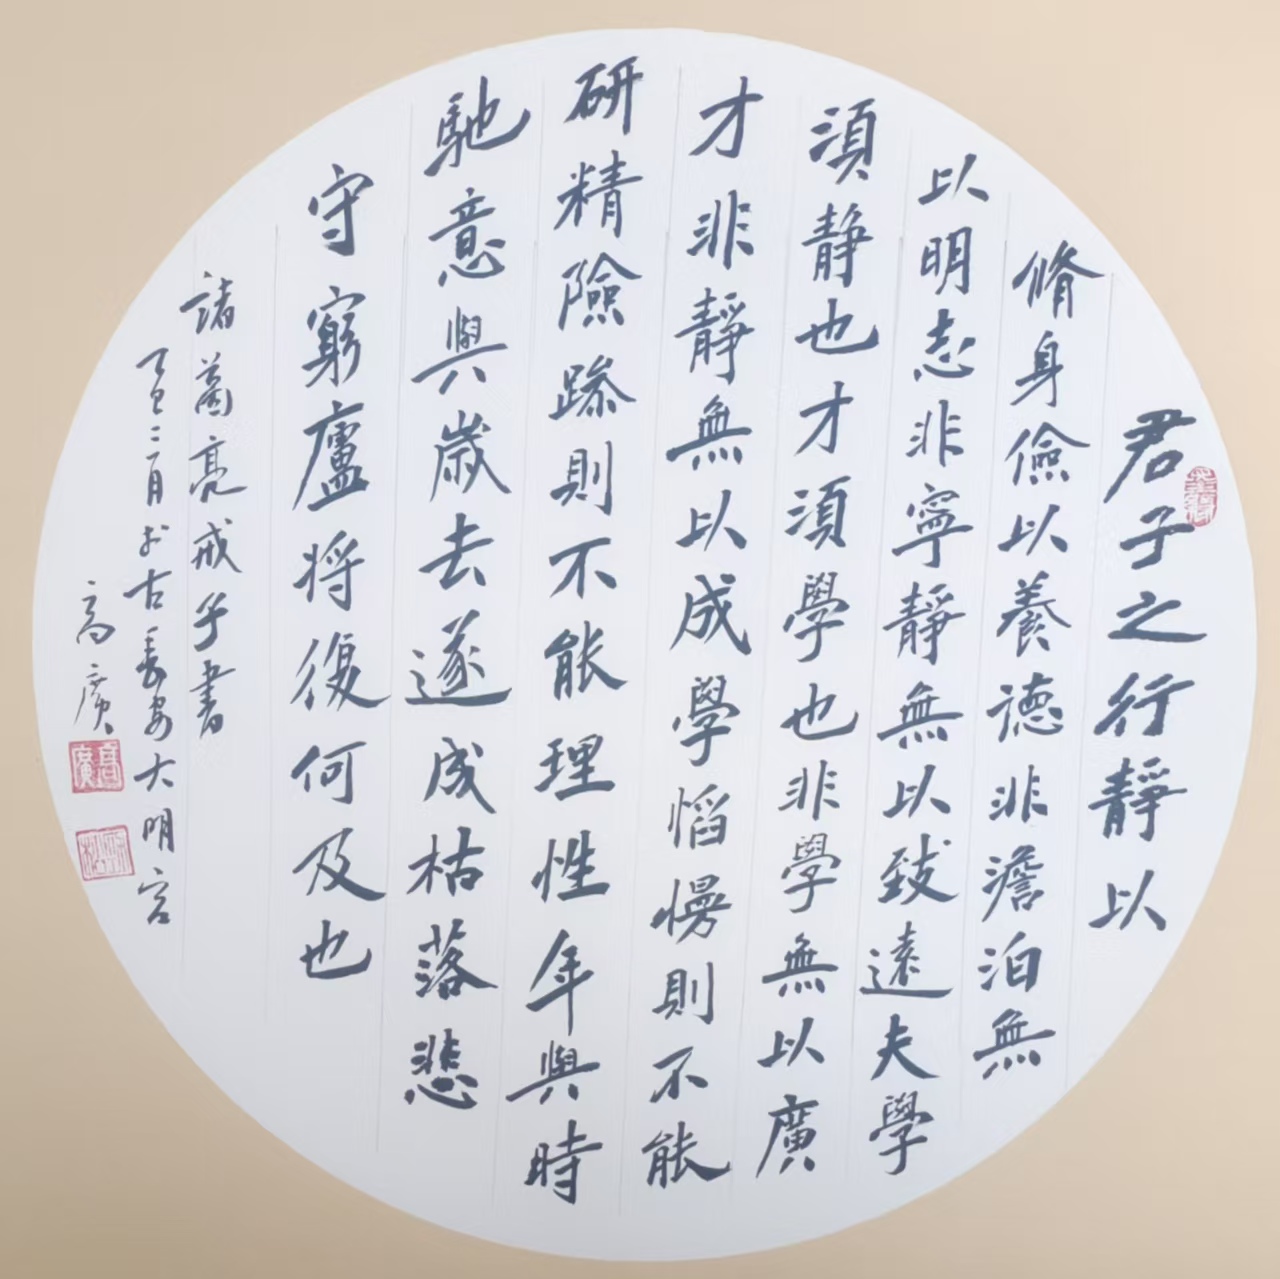 君子之行靜以
脩身儉以養德非澹泊無
以明志非寧靜無以致遠夫學
須静也才須學也非學無以廣
才非靜無以成學慆慢則不能
研精險躁則不能理性年與時
馳意與歲去遂成枯落悲
守窮廬將復何及也
諸葛亮戒子書
二月於古長安大明宮
高廣
高廣